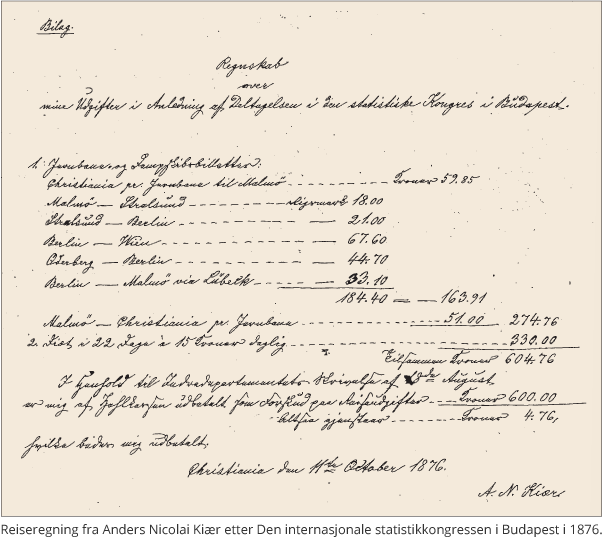 Bilag.
Regnskab
over
mine Udgifter i Anledning af Deltagelsen i den statistiske Kongres i Budapest.
1. Jernbane- og Dampskibsbilletter:
Christiania pr. Jernbane til Malmö - - - - - - - - - - Kroner 59.85
Malmö — Stralsund - - - - - - - - - - Rigsmark 18.00
Stralsund — Berlin - - - - - - - - - - — 21.00
Berlin — Wien - - - - - - - - - - — 67.60
Oderberg — Berlin - - - - - - - - - - — 44.70
Berlin — Malmö via Lübeck - - - - - — 33.10
184.40 = — 163.91
Malmö — Christiania pr. Jernbane - - - - - - - - - - 51.00 274.76
2. Diæt i 22 Dage a 15 Kroner daglig - - - - - - - - - - 330.00
Tilsammen Kroner 604.76
I Henhold til Indredepartementets Skrivelse af August
er mig af udbetalt som Forskud paa Reiseudgifter - - - - Kroner 600.00
altsaa gjenstaar - - - - Kroner 4.76,
hvilke bedes mig udbetalt.
Christiania den 11te October 1876.
A. N. Kiær
Reiseregning fra Anders Nicolai Kiær etter Den internasjonale statistikkongressen i Budapest i 1876.